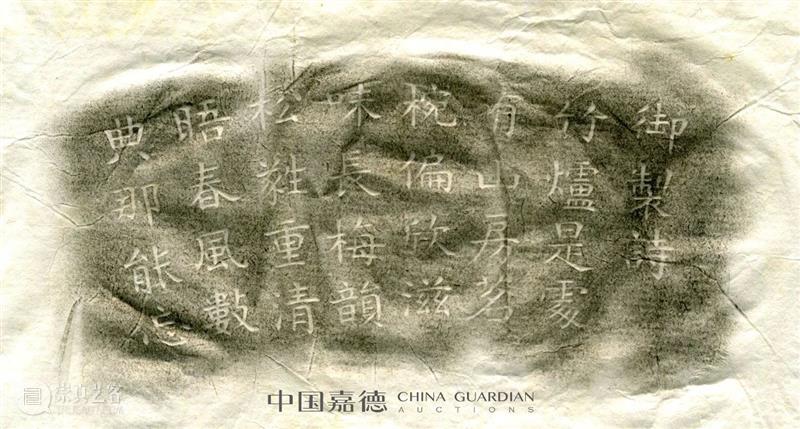 御製詩
竹爐是處
有山房茗
椀偏欣滋
味長梅韻
松蕤重清
晤春風數
典那能忘
中国嘉德 CHINA GUARDIAN
AUCTIONS
崇真艺客